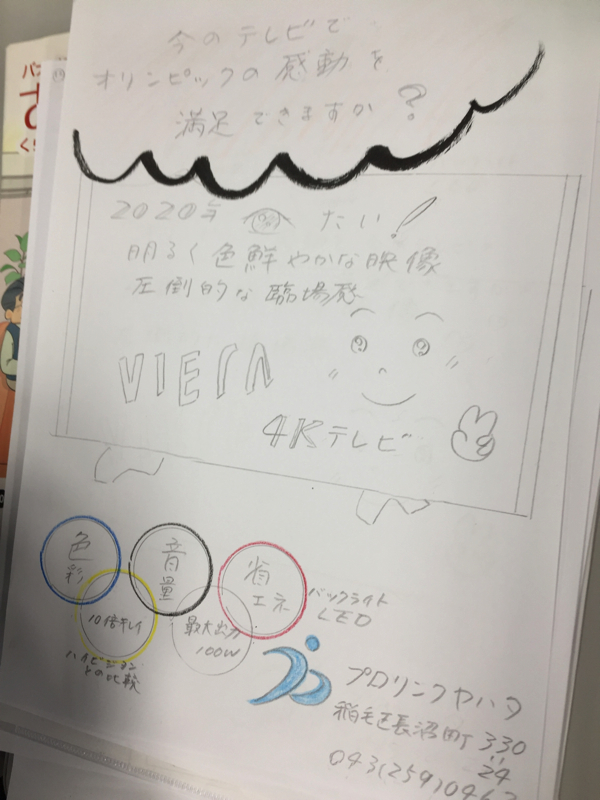 今のテレビで
オリンピックの感動を
満足できますか?
2020年 たい!
明るく色鮮やかな映像
圧倒的な臨場感
VIERA
4Kテレビ
色彩
音量
省エネ
バックライト
LED
10倍キレイ
最大出力
100W
ハイビジョン
との比較
プロリンクヤハタ
稲毛区長沼町330
24
043(259)046